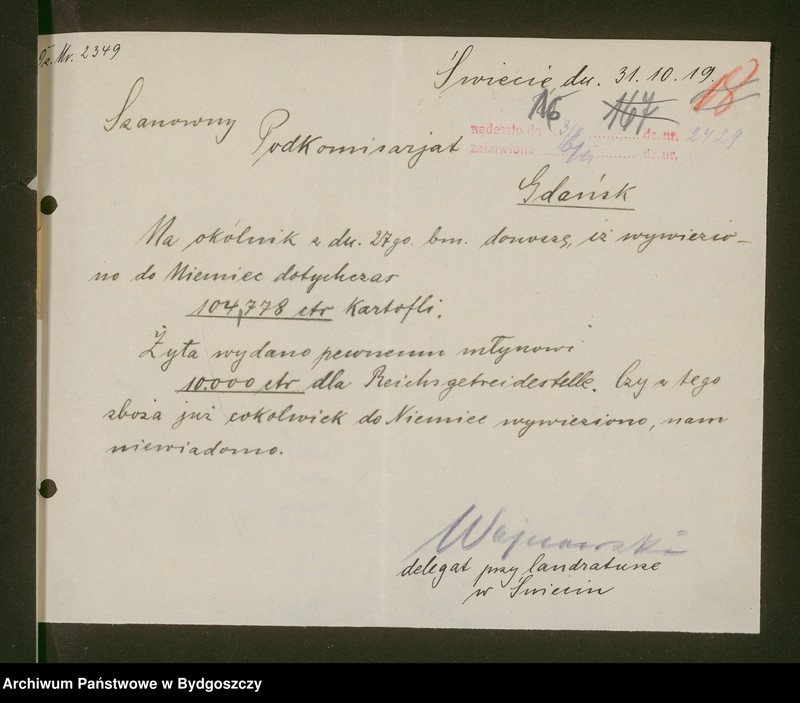 Dz. Nr. 2349
Świecie dn. 31.10.19.
18
16 167
Szanowny
Podkomisarjat
nadeszło dn. 3/XI dz. nr. 2429
załatwiono 6/XI dz. nr.
Gdańsk
Na okólnik z dn. 27go. bm. donoszę, iż wywiezio-
no do Niemiec dotychczas
104,778 ctr kartofli.
Żyta wydano pewnemu młynowi
10.000 ctr dla Reichsgetreidestelle. Czy z tego
zboża już cokolwiek do Niemiec wywieziono, nam
niewiadomo.
Wojnowski
delegat przy landraturze
w Świeciu
Archiwum Państwowe w Bydgoszczy